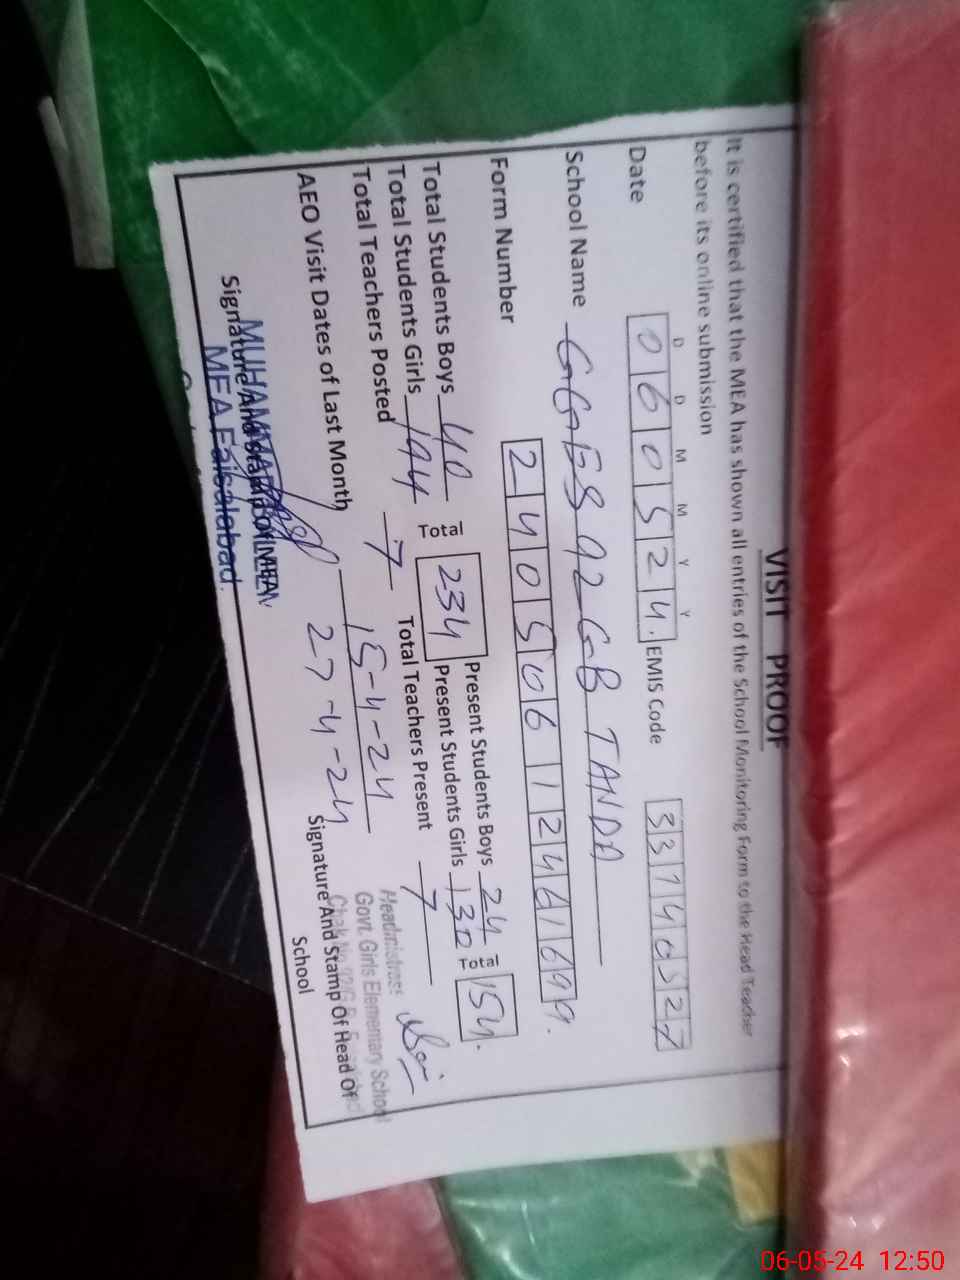 VISIT PROOF
It is certified that the MEA has shown all entries of the School Monitoring Form to the Head Teacher
before its online submission
D D M M Y Y
Date 060524. EMIS Code 33140327
School Name GGES 92 GB TANDA
Form Number 24050612461699.
Total Students Boys 40 Total 234 Present Students Boys 24 Total 154.
Total Students Girls 194 Present Students Girls 130
Total Teachers Posted 7 Total Teachers Present 7
AEO Visit Dates of Last Month 15-4-24
27-4-24
Headmistress
Govt. Girls Elementary School
Signature And Stamp Of Head Of
School
Signature And Stamp Of MEA
MUHAMMAD
MEA Faisalabad.
06-05-24 12:50